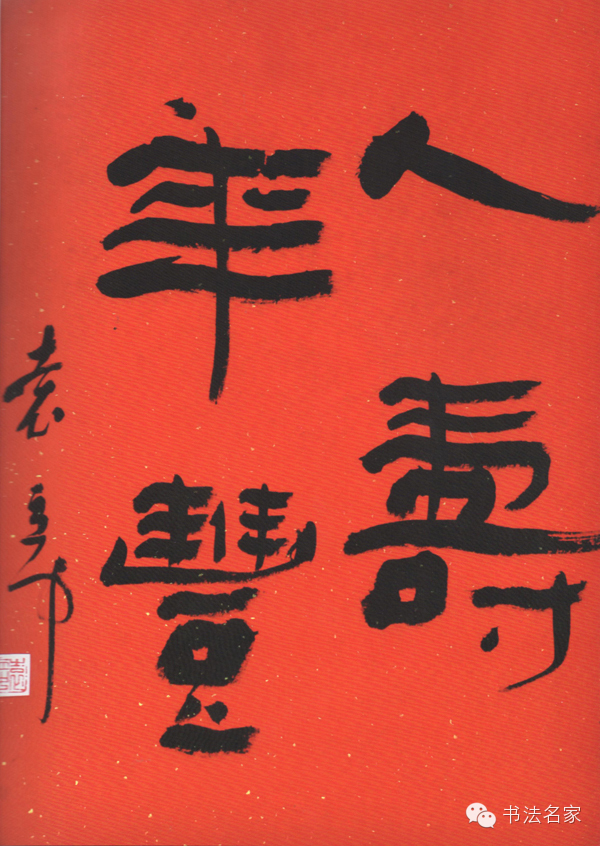 人壽
年豐
袁立中
书法名家